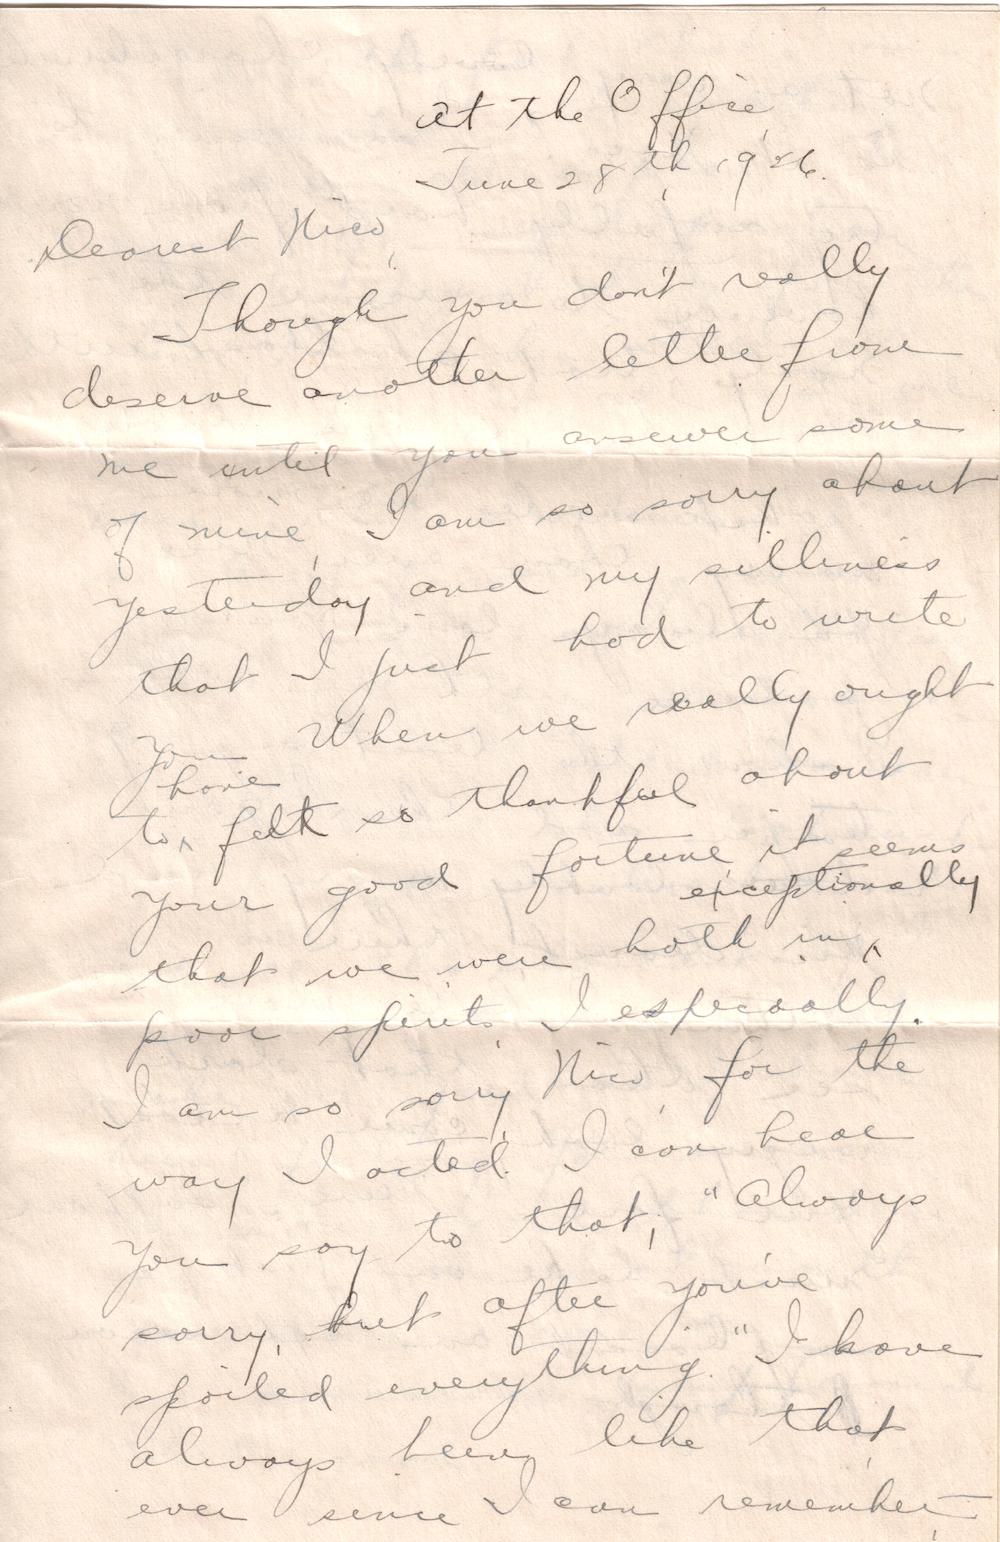 At the Office,
June 28th, 1926.
Dearest Nico,
Though you don't really
deserve another letter from
me until you answer some
of mine, I am so sorry about
yesterday and my silliness
that I just had to write
you. When we really ought
have
to ^ felt so thankful about
your good fortune it seems
exceptionally
that we were both in ^
poor spirits, I especially.
I am so sorry, Nico, for the
way I acted. I can hear
you say to that, "Always
sorry, but after you've
spoiled everything." I have
always been like that
ever since I can remember,